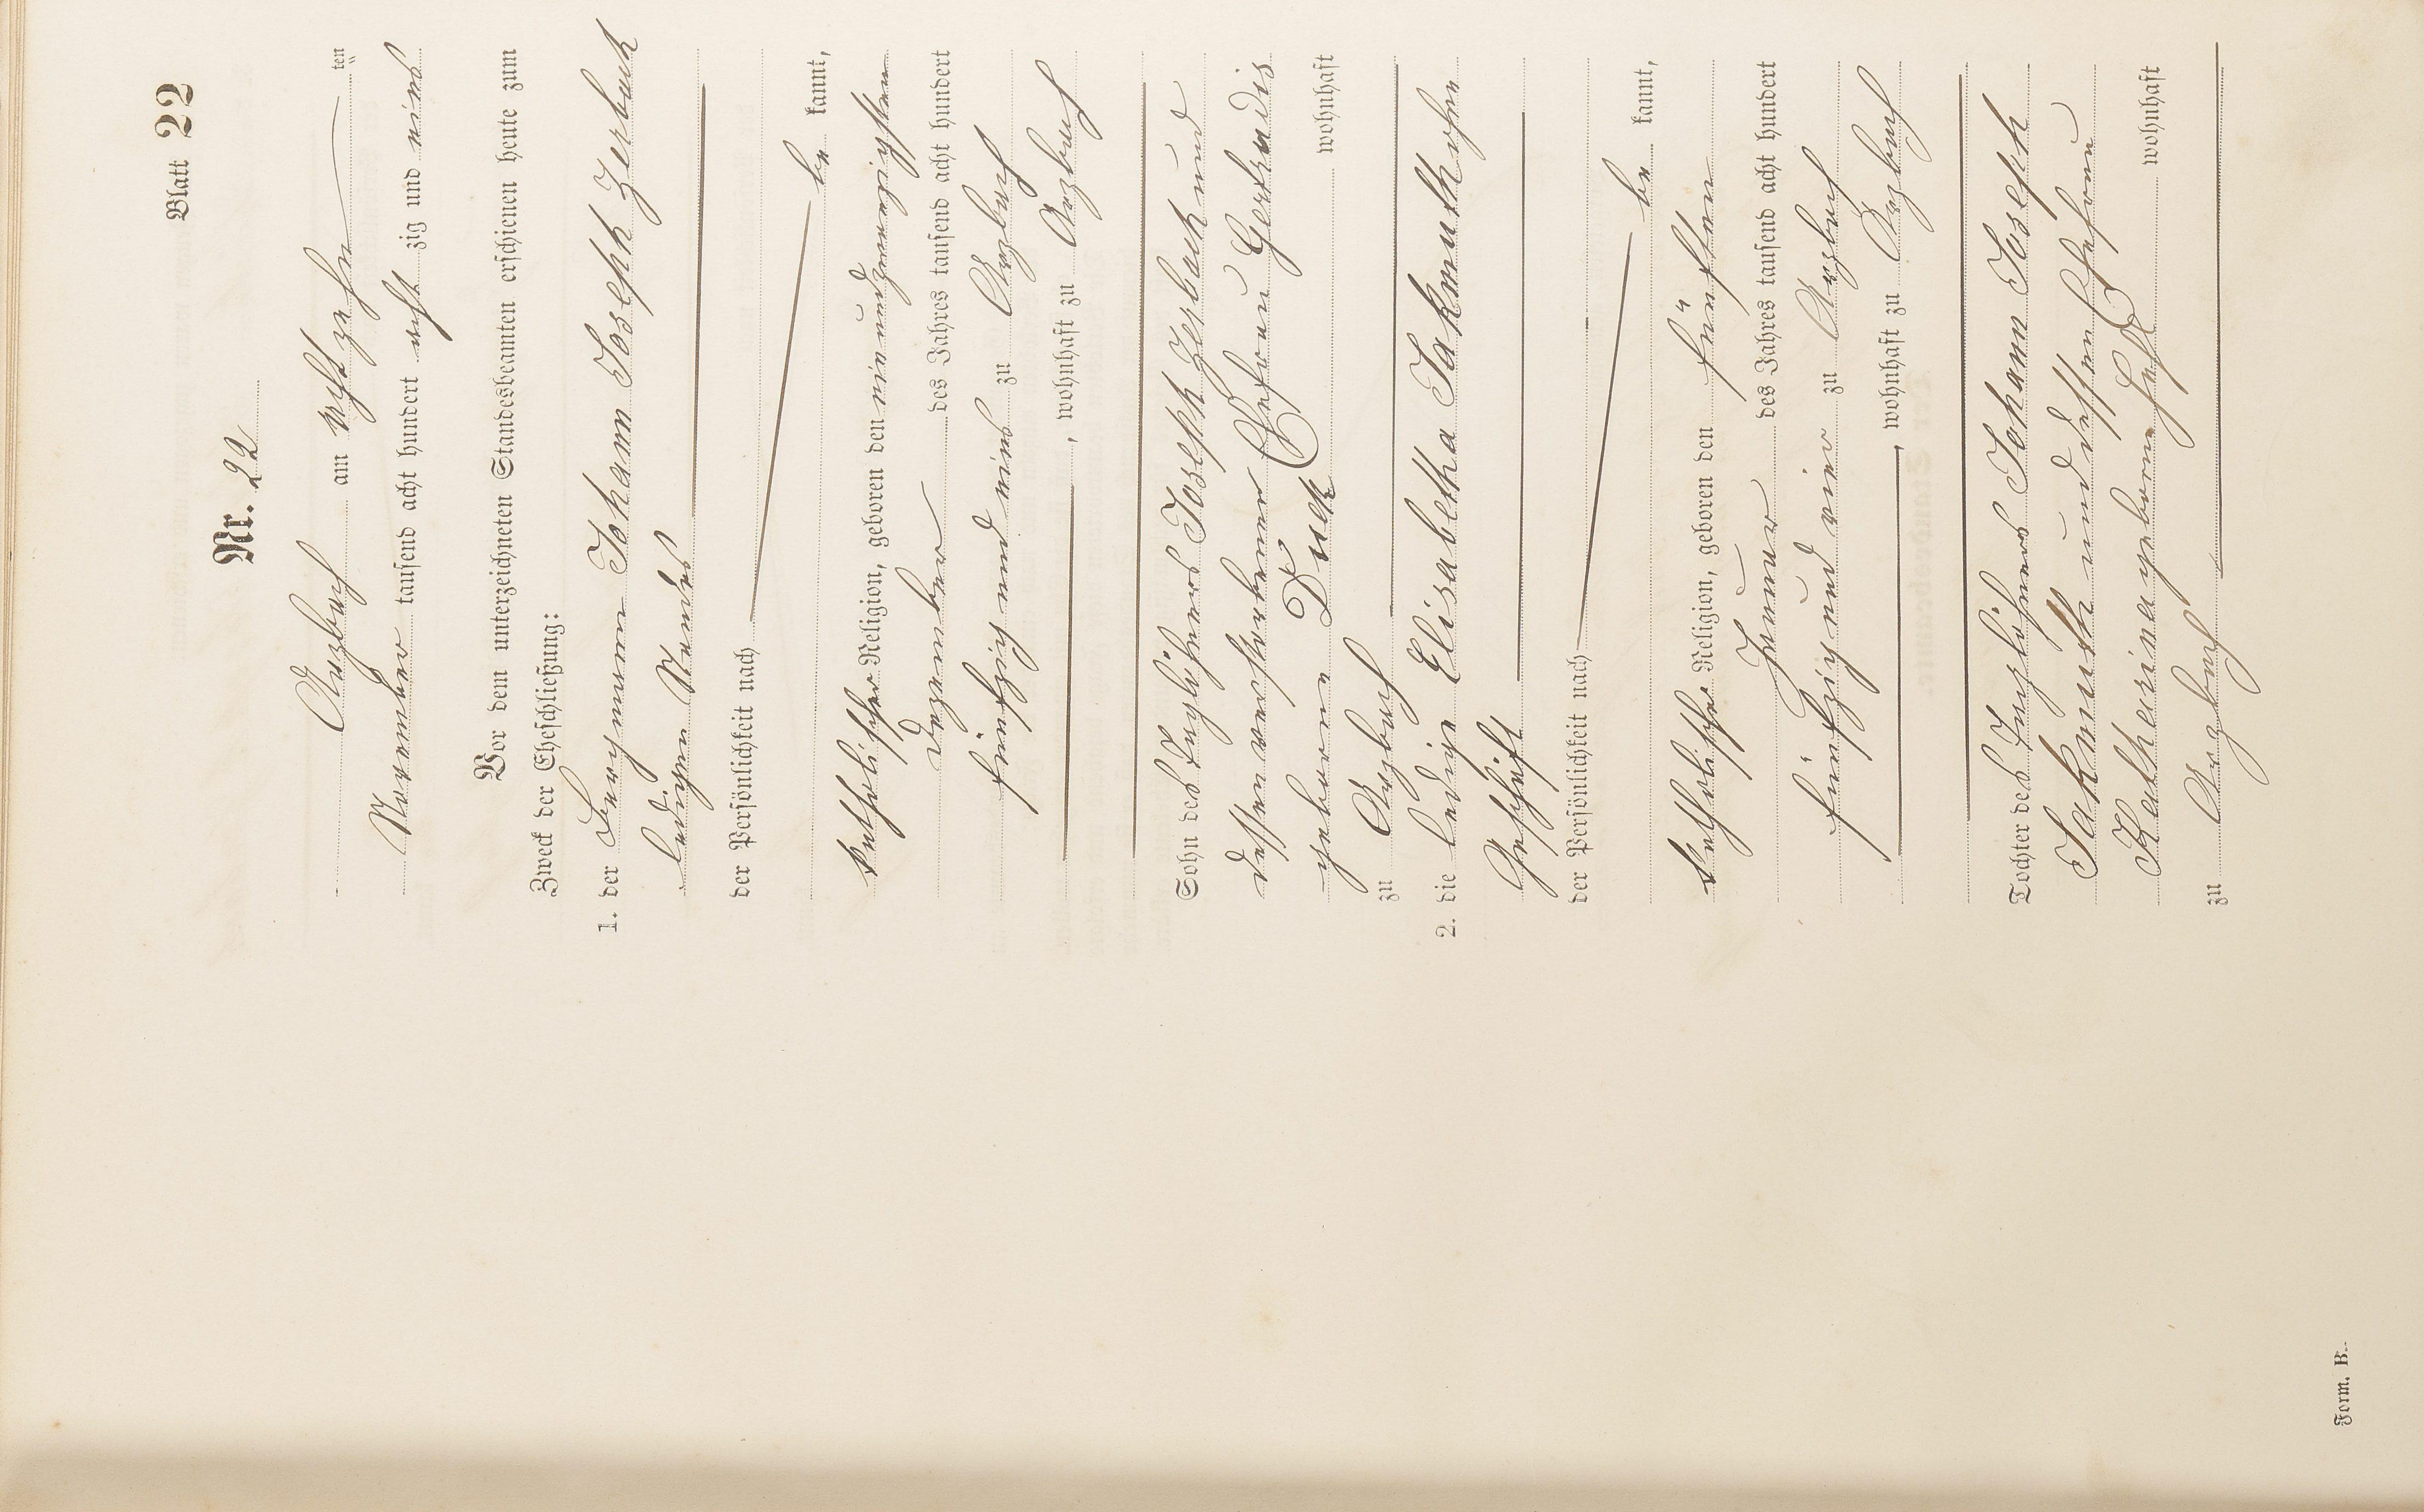 Blatt 22
Nr. 22
Arzbach am achtzehn ten
November tausend acht hundert acht zig und eins
Vor dem unterzeichneten Standesbeamten erschienen heute zum
Zweck der Eheschließung:
1. der Bergmann Johann Joseph Zerbach
ledigen Standes
der Persönlichkeit nach
be kannt,
katholischer Religion, geboren den neunundzwanzigsten
Dezember des Jahres tausend acht hundert
fünfzig und eins zu Arzbach
, wohnhaft zu Arzbach
Sohn des Taglöhners Joseph Zerbach und
dessen verstorbener Ehefrau Gertrudis
geborne Duck wohnhaft
zu Arzbach
2. die ledige Elisabetha Sakmuth ohne
Geschäft
der Persönlichkeit nach
be kannt,
katholischer Religion, geboren den fünften
Januar des Jahres tausend acht hundert
fünfzig und vier zu Arzbach
, wohnhaft zu Arzbach
Tochter des Taglöhners Johann Joseph
Sakmuth und dessen Ehefrau
Katharina geborne wohnhaft
zu Arzbach
Form. B.